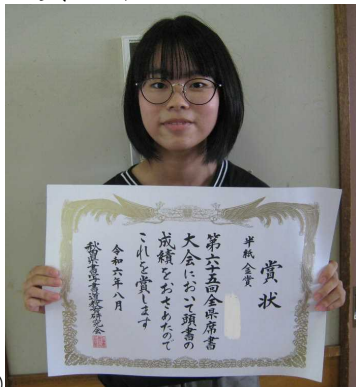 賞状
半紙 金賞
第六十五回全県席書
大会において頭書の
成績をおさめたので
これを賞します
令和六年八月
秋田県書写書道教育研究会